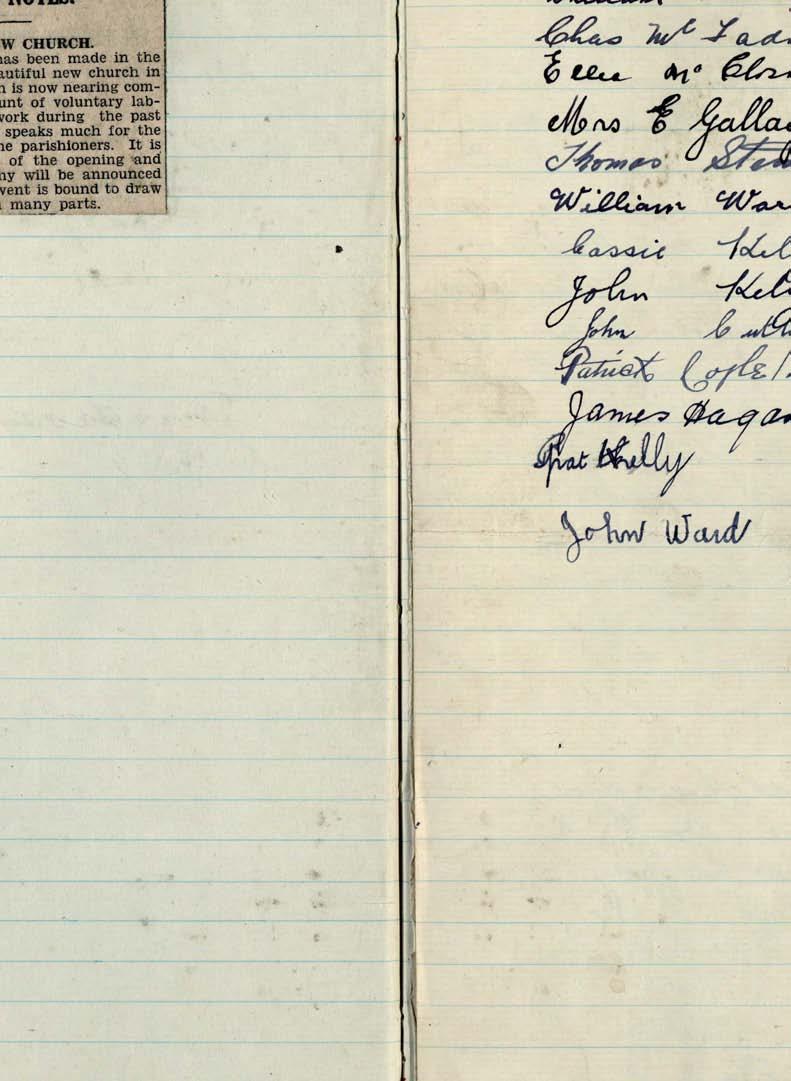 NOTES.
W CHURCH.
has been made in the
autiful new church in
n is now nearing com-
unt of voluntary lab-
work during the past
speaks much for the
he parishioners. It is
of the opening and
ny will be announced
vent is bound to draw
many parts.
Chas Mc Fadd
Ellie Mc Clos
Mrs E Galla
Thomas Ste
William War
Cassie Kel
John Kel
John
Patrick Coyle
James Hagan
Pat Kelly
John Ward